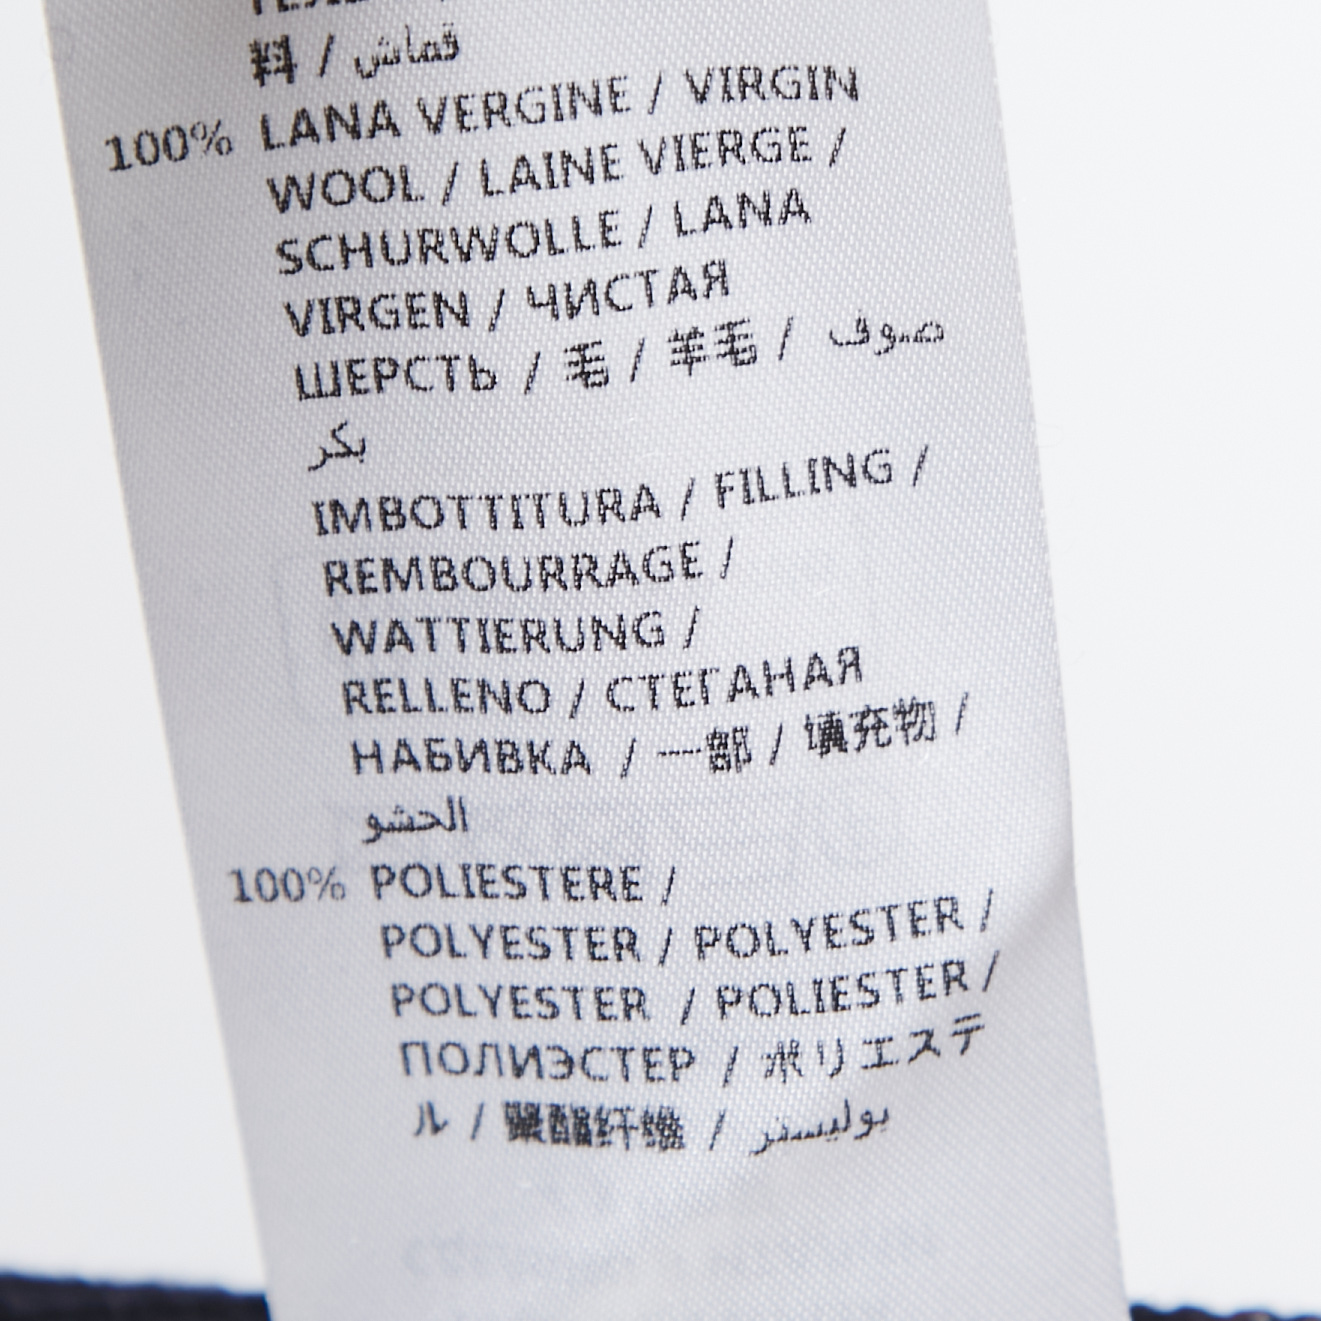 料 / قماش
100% LANA VERGINE / VIRGIN
WOOL / LAINE VIERGE /
SCHURWOLLE / LANA
VIRGEN / ЧИСТАЯ
ШЕРСТЬ / 毛 / 羊毛 / صوف
بكر
IMBOTTITURA / FILLING /
REMBOURRAGE /
WATTIERUNG /
RELLENO / СТЕГАНАЯ
НАБИВКА / 一部 / 填充物 /
الحشو
100% POLIESTERE /
POLYESTER / POLYESTER /
POLYESTER / POLIESTER /
ПОЛИЭСТЕР / ポリエステ
ル / 聚酯纤维 / بوليستر